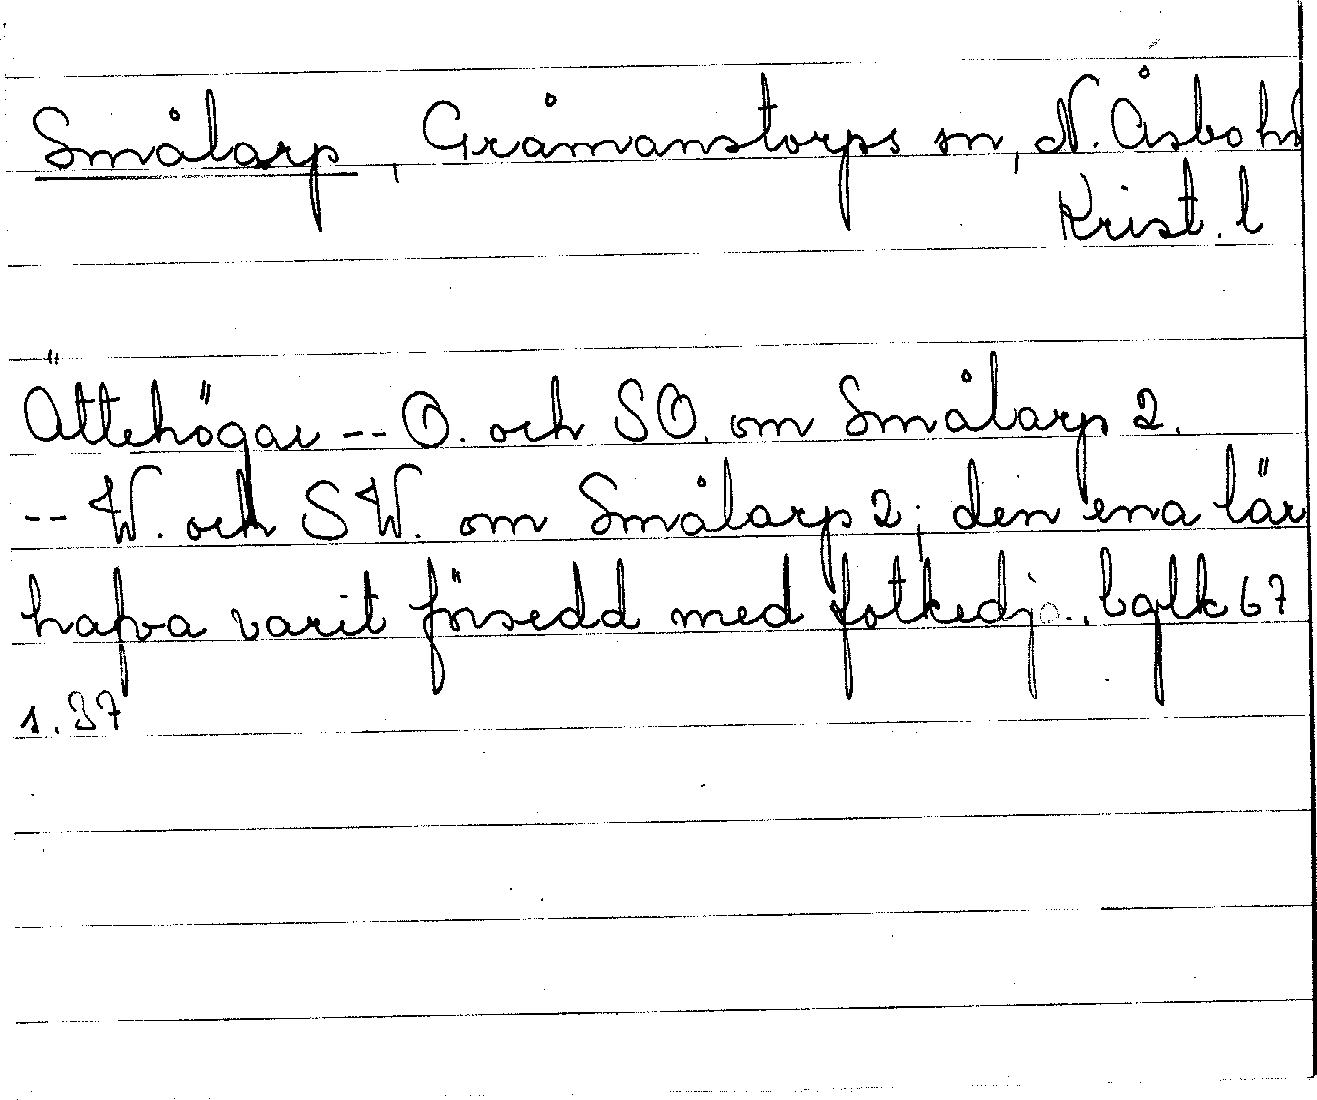 Smålarp, Gråmanstorps sn, N. Åsbo hd
Krist. l
Ättehögar -- O. och SO. om Smålarp 2.
-- W. och SW. om Smålarp 2; den ena lär
hafva varit försedd med fotkedja., bglk 67
1.37